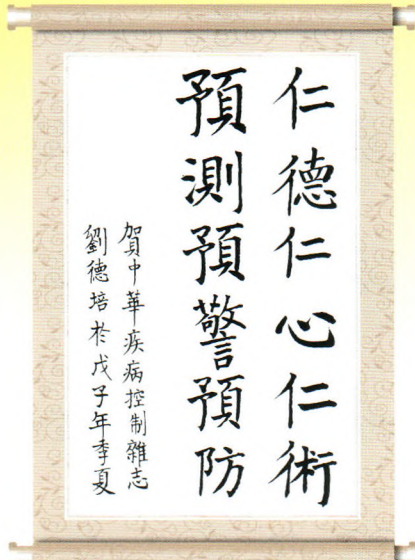 仁德仁心仁術
預測預警預防
賀中華疾病控制雜志
劉德培於戊子年季夏